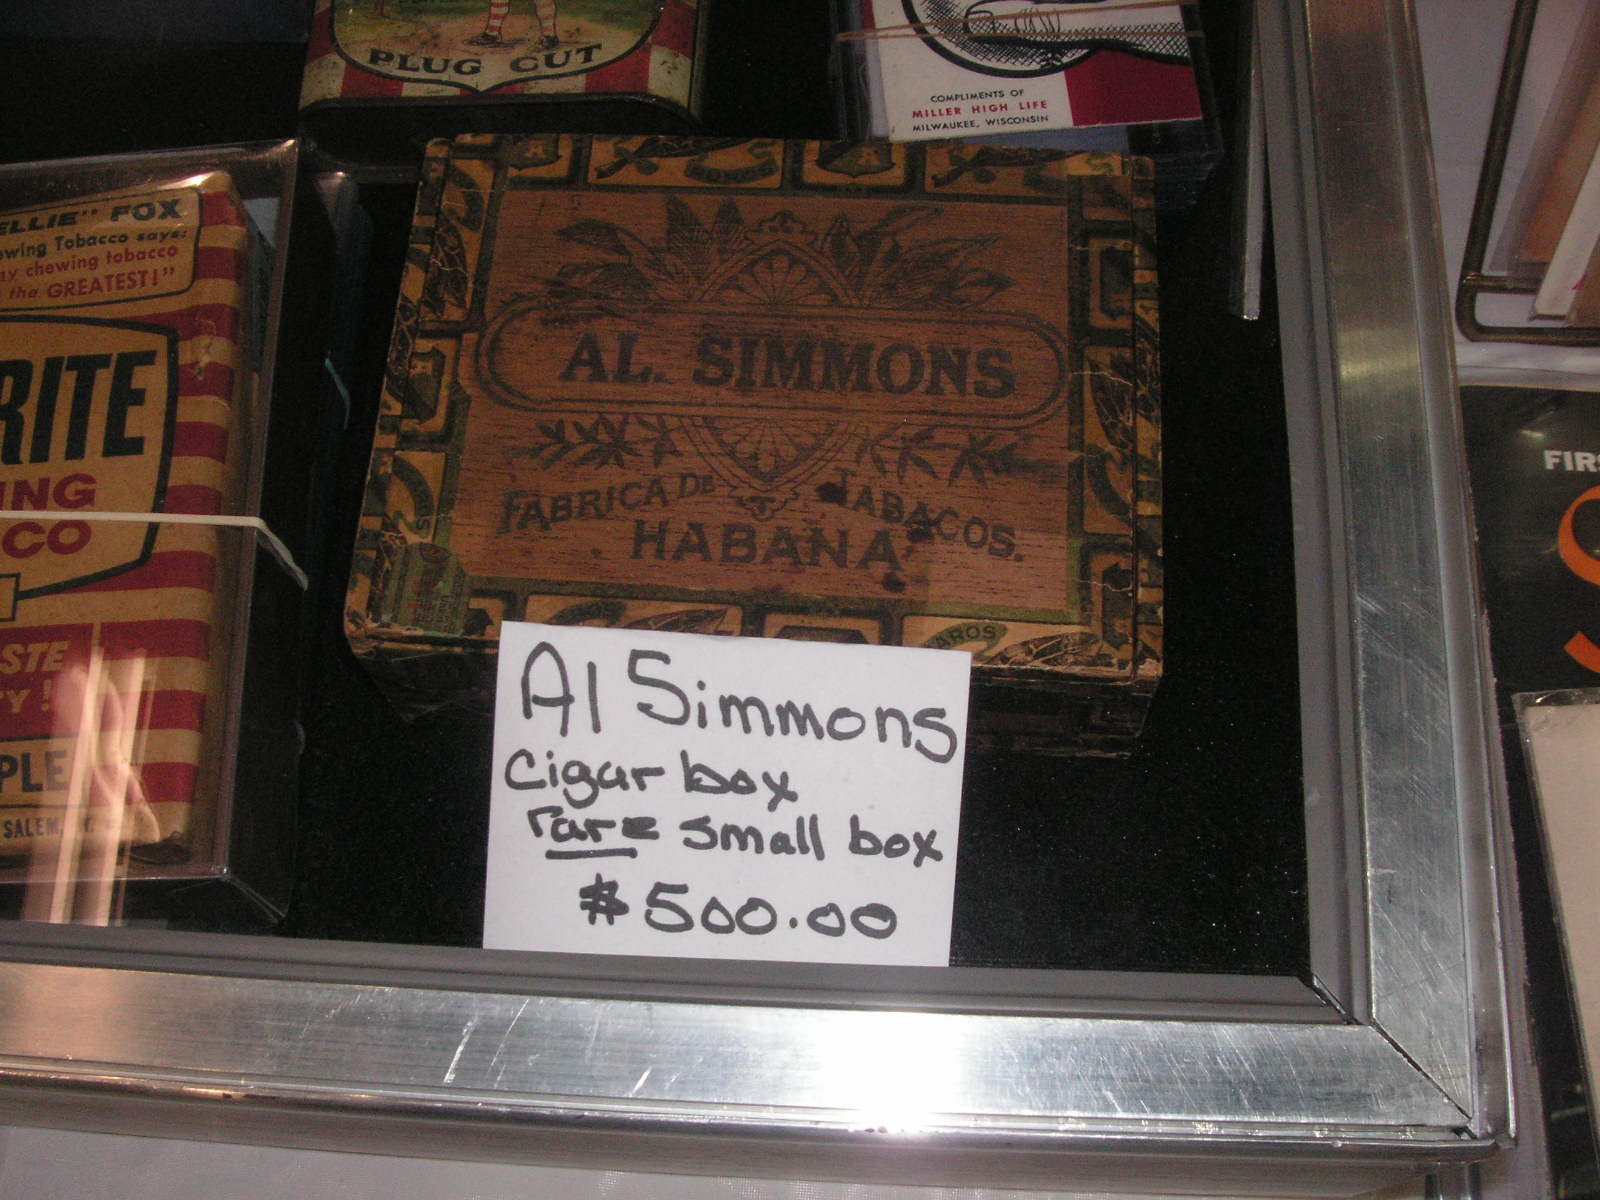 PLUG CUT
COMPLIMENTS OF
MILLER HIGH LIFE
MILWAUKEE, WISCONSIN
ELLIE" FOX
ewing Tobacco says:
ny chewing tobacco
the GREATEST!"
RITE
ING
CO
STE
Y!
PLE
SALEM,
A A
AL. SIMMONS
FABRICA DE TABACOS.
HABANA
AROS
Al Simmons
Cigar box
rare small box
$500.00
FIRS
S